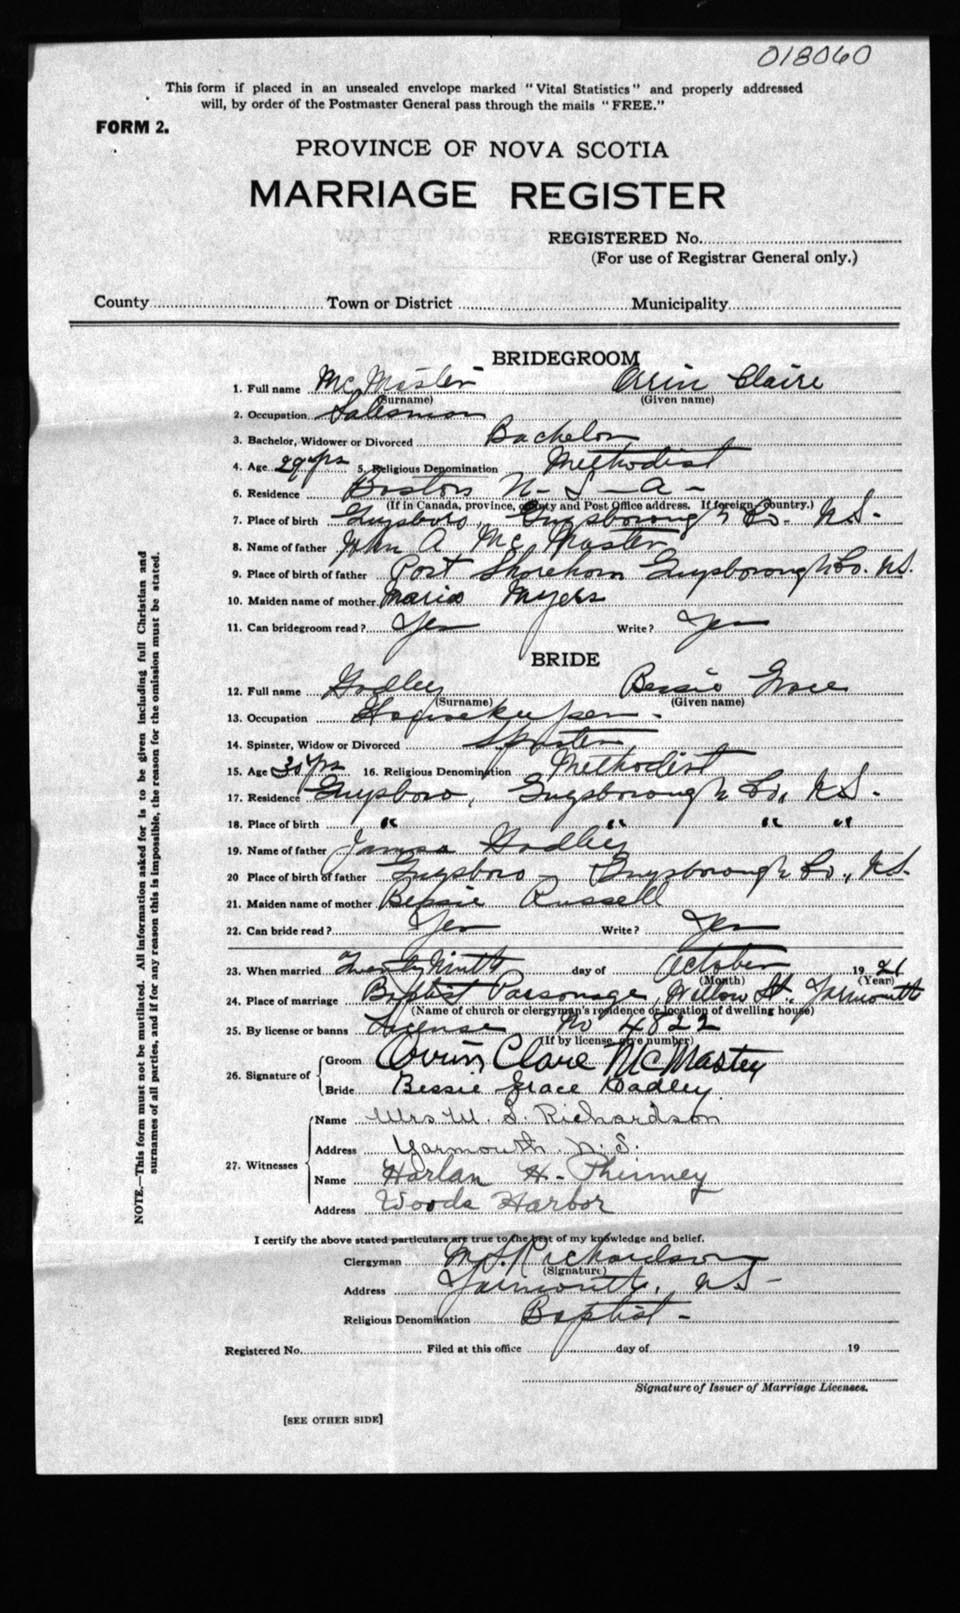 018060
This form if placed in an unsealed envelope marked "Vital Statistics" and properly addressed
will, by order of the Postmaster General pass through the mails "FREE."
FORM 2.
PROVINCE OF NOVA SCOTIA
MARRIAGE REGISTER
REGISTERED No.
(For use of Registrar General only.)
County Town or District Municipality
BRIDEGROOM
1. Full name McMaster Orrin Claire
(Surname) (Given name)
2. Occupation Salesman
3. Bachelor, Widower or Divorced Bachelor
4. Age 29 yrs 5. Religious Denomination Methodist
6. Residence Boston U-S-A-
(If in Canada, province, county and Post Office address. If foreign, country.)
7. Place of birth Guysboro, Guysborough Co. N.S.
8. Name of father John A McMaster
9. Place of birth of father Port Shoreham Guysborough Co. N.S.
10. Maiden name of mother Maria Myers
11. Can bridegroom read? Yes Write? Yes
BRIDE
12. Full name Godley Bessie Grace
(Surname) (Given name)
13. Occupation Housekeeper -
14. Spinster, Widow or Divorced Spinster
15. Age 30 yrs 16. Religious Denomination Methodist
17. Residence Guysboro, Guysborough Co., N.S.
18. Place of birth " " " "
19. Name of father James Godley
20 Place of birth of father Guysboro - Guysborough Co., N.S.
21. Maiden name of mother Bessie Russell
22. Can bride read? Yes Write? Yes
23. When married Twenty Ninth day of October 19 21
(Month) (Year)
24. Place of marriage Baptist Parsonage, Willow St. Yarmouth
(Name of church or clergyman's residence or location of dwelling house)
25. By license or banns License No 4822
(If by license, give number)
26. Signature of Groom Orrin Clare McMaster
Bride Bessie Grace Godley
27. Witnesses Name Mrs M. S. Richardson
Address Yarmouth N.S.
Name Harlan H. Phinney
Address Woods Harbor
I certify the above stated particulars are true to the best of my knowledge and belief.
Clergyman M.S. Richardson
(Signature)
Address Yarmouth, N.S-
Religious Denomination Baptist -
Registered No. Filed at this office day of 19
Signature of Issuer of Marriage Licenses.
[SEE OTHER SIDE]
NOTE.—This form must not be mutilated. All information asked for is to be given including full Christian and
surnames of all parties, and if for any reason this is impossible, the reason for the omission must be stated.